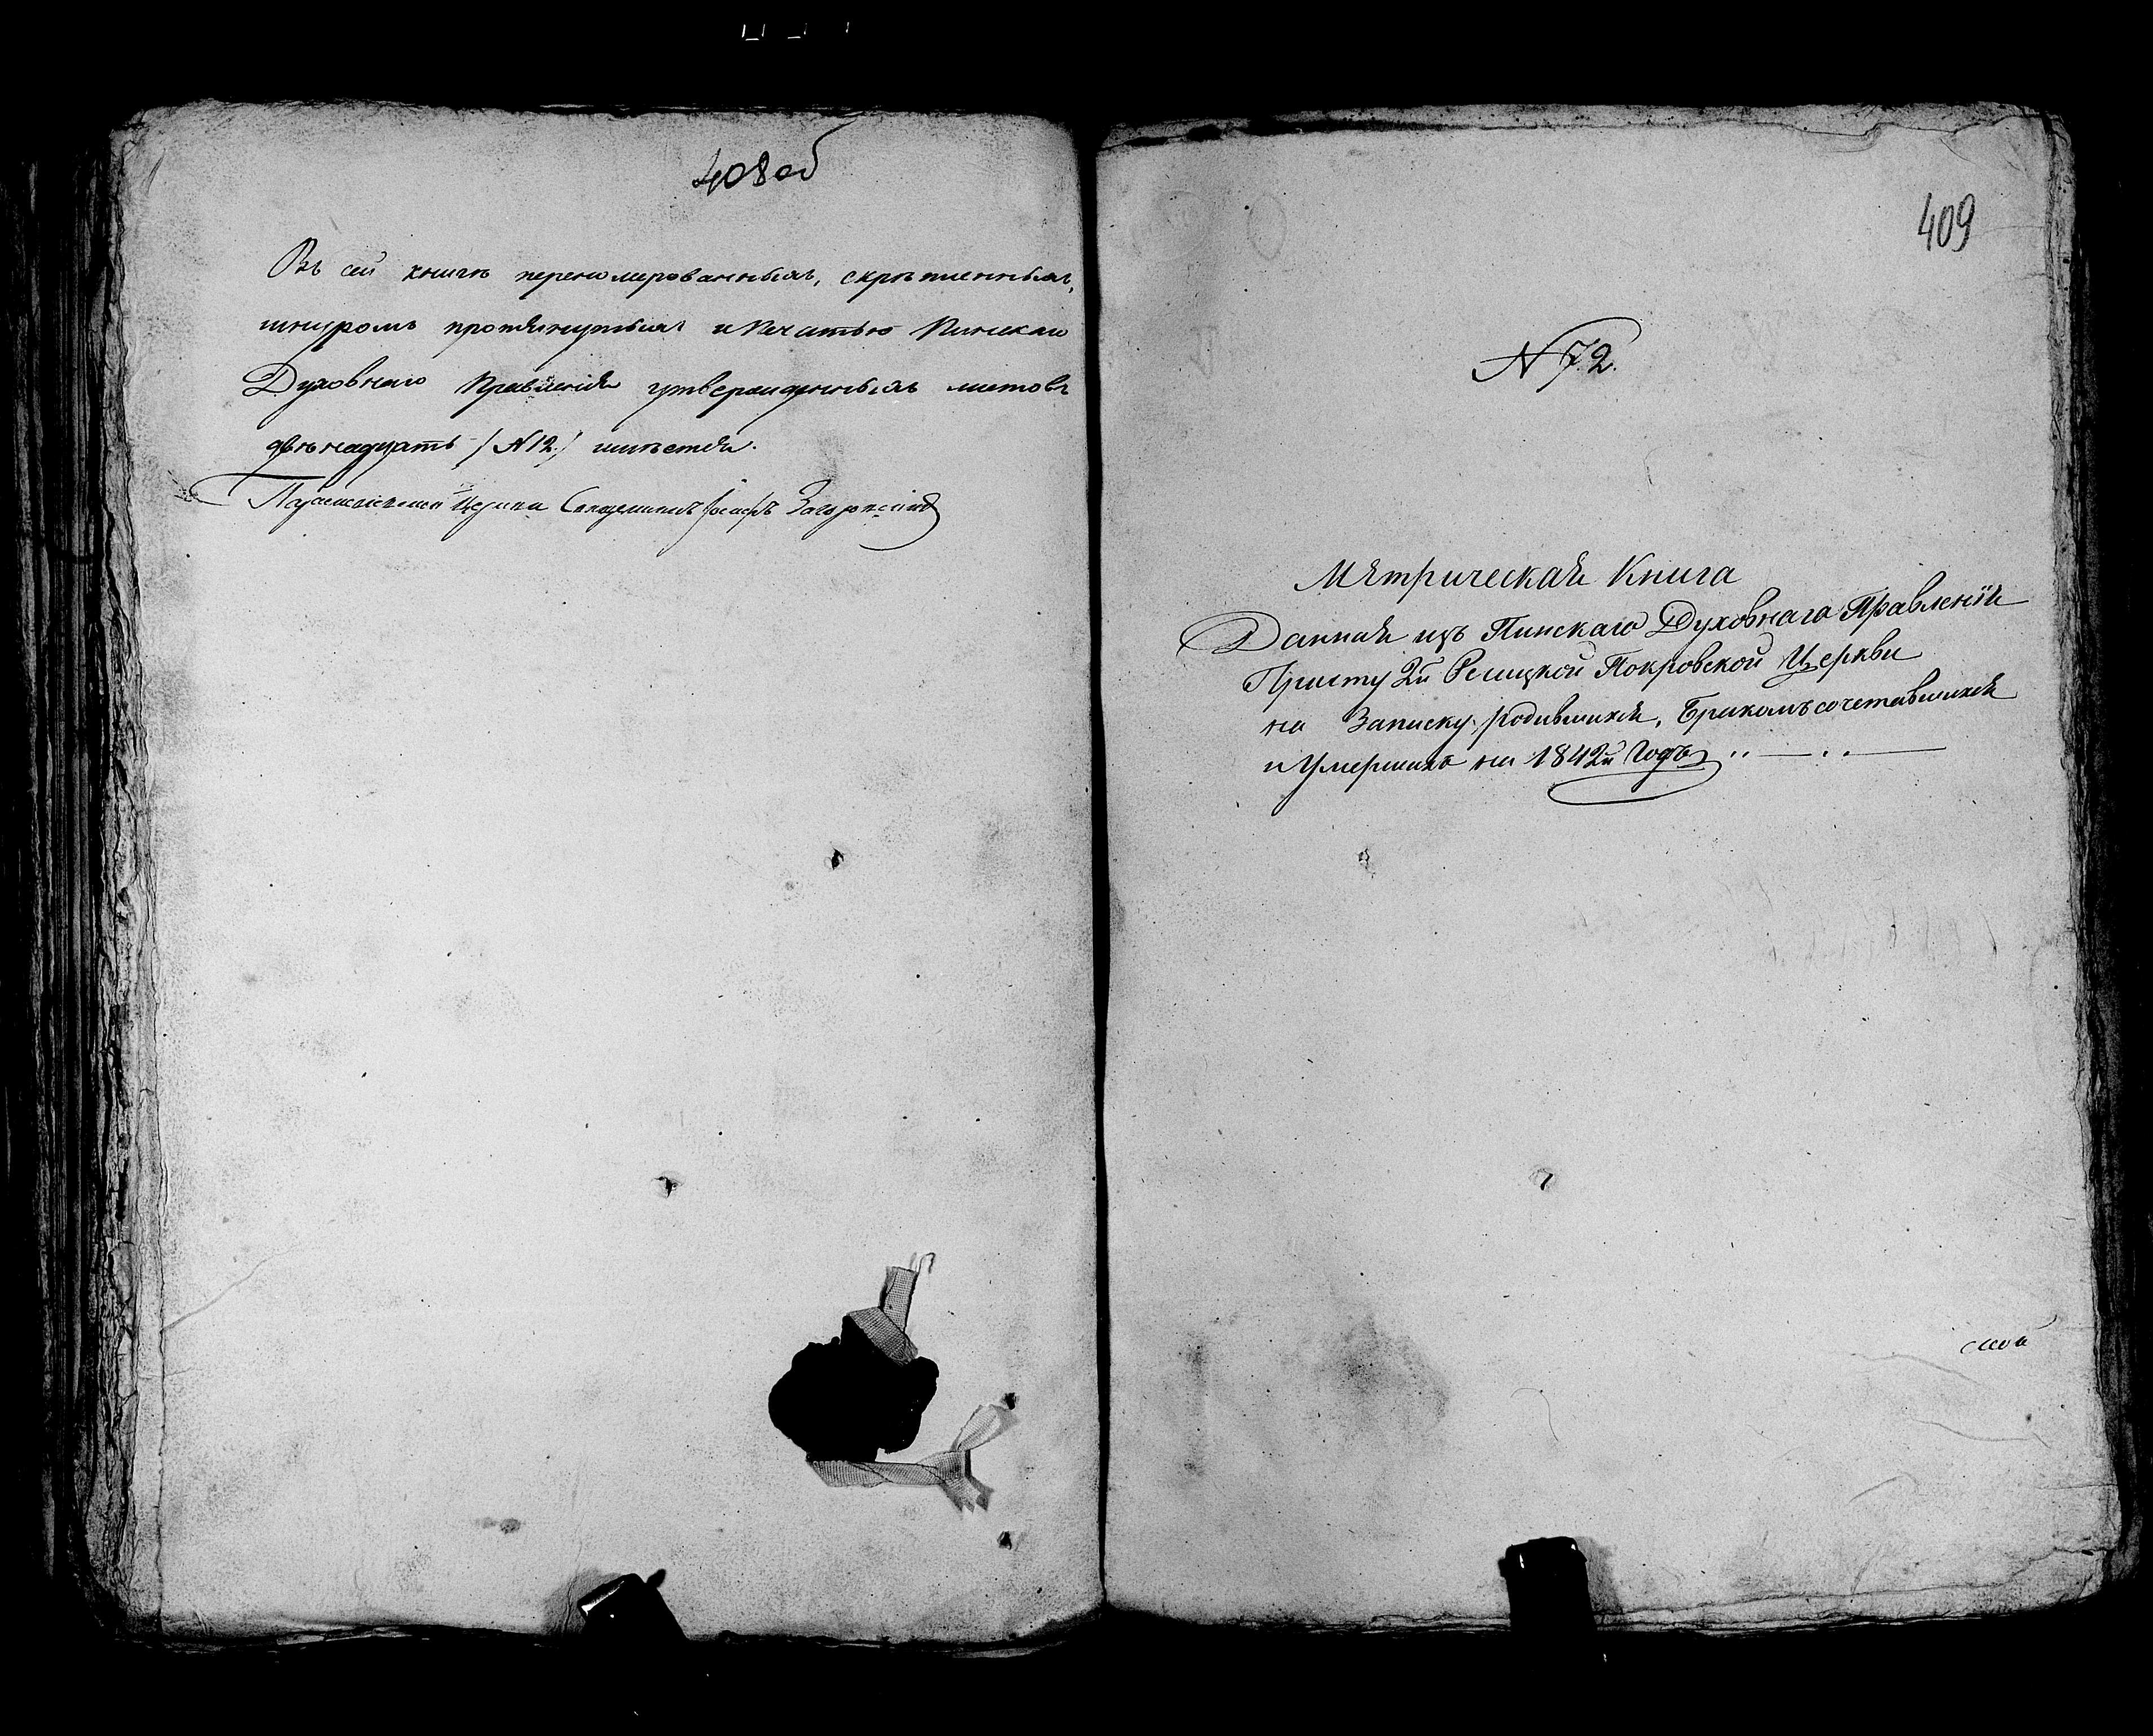 408 об
Въ сей книгѣ переномерованныхъ, скрѣпленныхъ,
шнуромъ протянутыхъ и печатью Пинскаго
Духовнаго Правленія утвержденныхъ листовъ
двѣнадцать /N 12./ шнѣстся.
Церкви Священникъ Іосифъ
409
N 72.
Мѣтрическая Книга
Данная изъ Пинскаго Духовнаго Правленія
Причту 2й Покровской Церкви
на Записку родившихся, Бракомъ сочетавшихся
и Умершихъ на 1842й Годъ